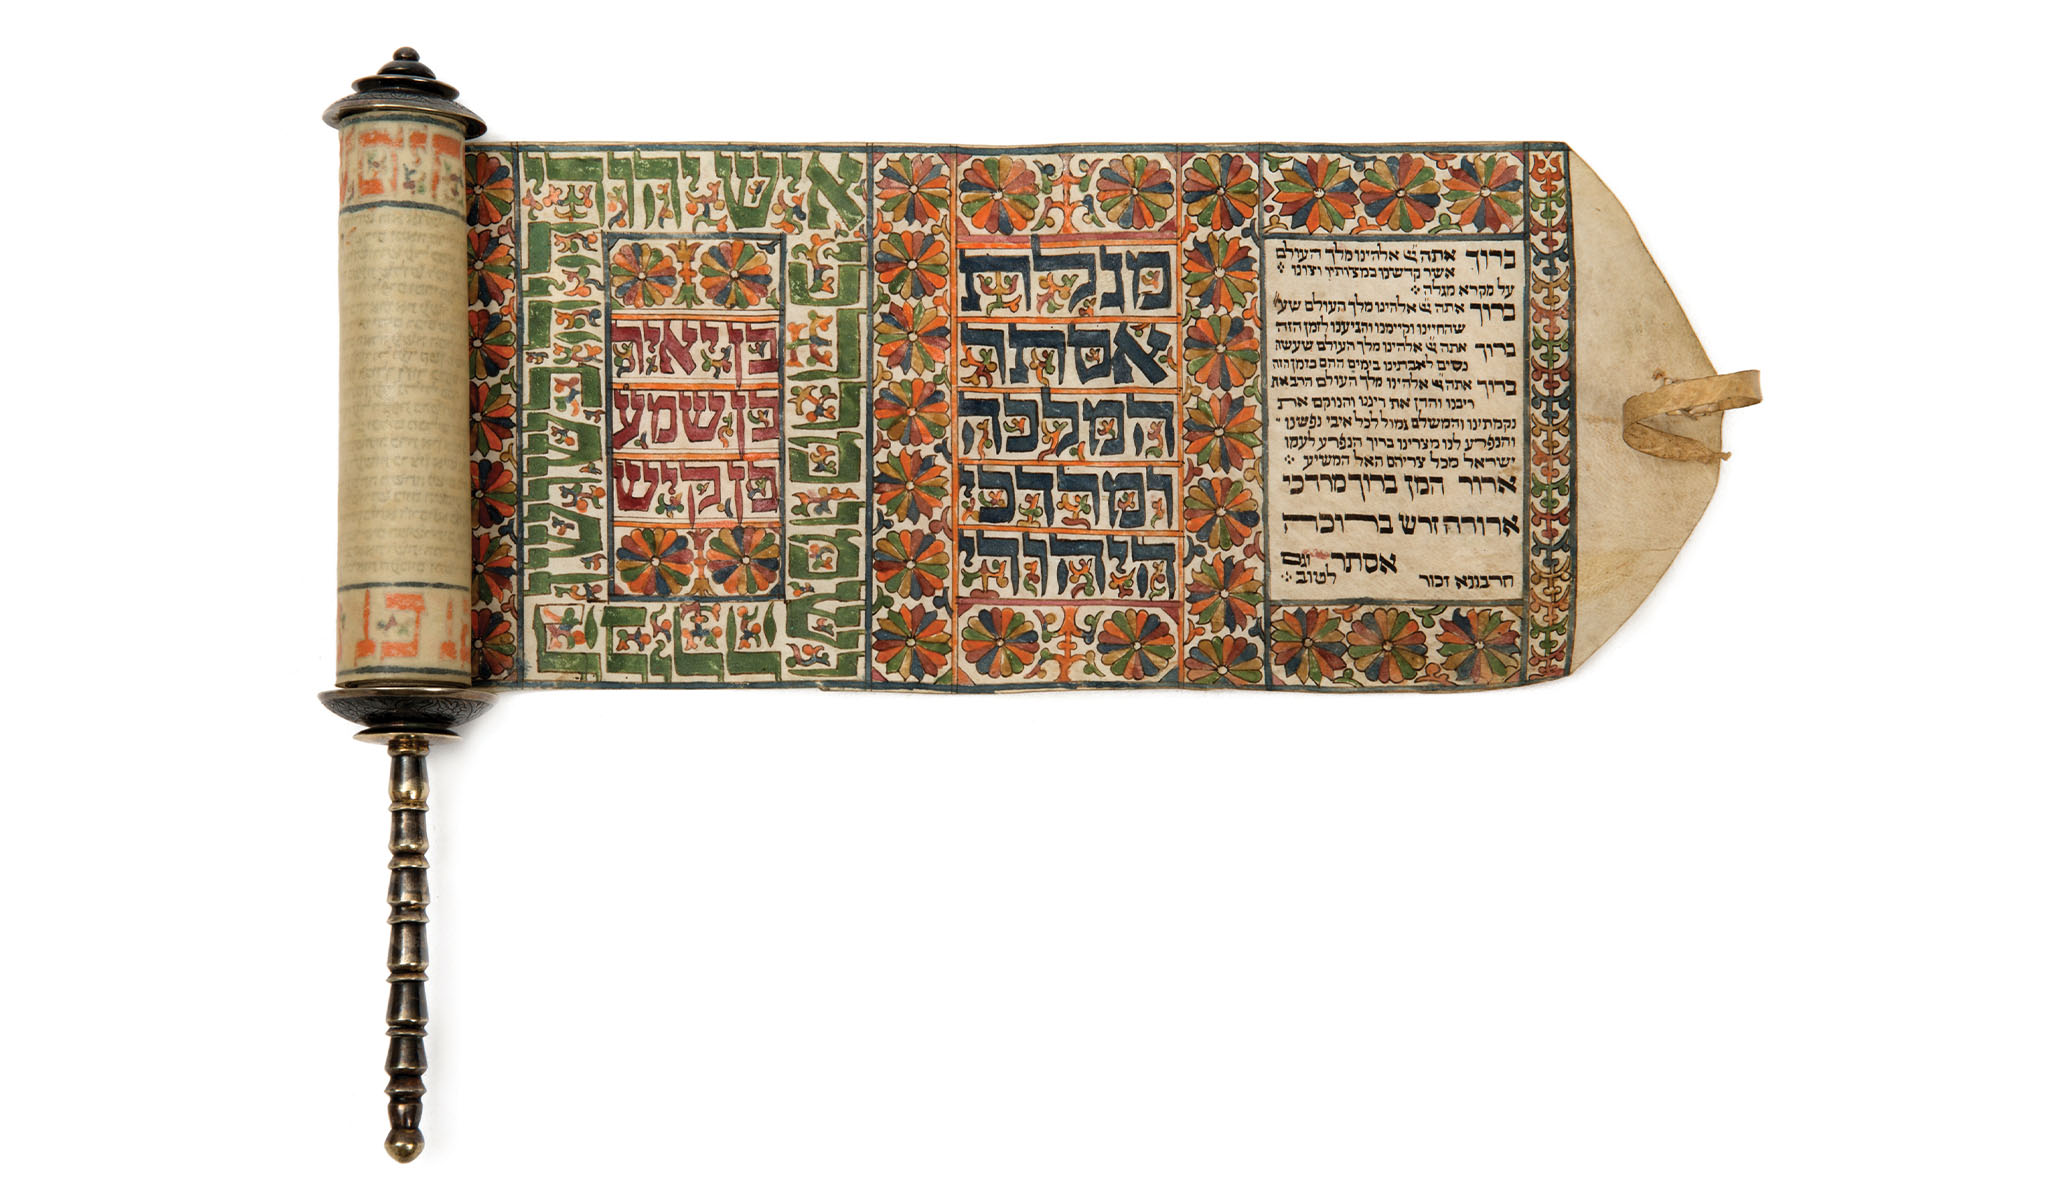 ברוך אתה יי אלהינו מלך העולם
אשר קדשנו במצותיו וצונו
על מקרא מגלה
ברוך אתה יי אלהינו מלך העולם
שהחיינו וקיימנו והגיענו לזמן הזה
ברוך אתה יי אלהינו מלך העולם שעשה
נסים לאבתינו בימים ההם בזמן הזה
ברוך אתה יי אלהינו מלך העולם הרב את
ריבנו והדן את דיננו והנוקם את
נקמתינו והמשלם גמול לכל איבי נפשנו
והנפרע לנו מצרינו ברוך הנפרע לעמו
ישראל מכל צריהם האל המשיע
ארור המן ברוך מרדכי
ארורה זרש ברוכה
אסתר וגם
חרבונא זכור לטוב
מגלת
אסתר
המלכה
ומרדכי
היהודי
איש יהודי
היה בשושן
הבירה
ושמו מרדכי
בן יאיר
בן שמעי
בן קיש